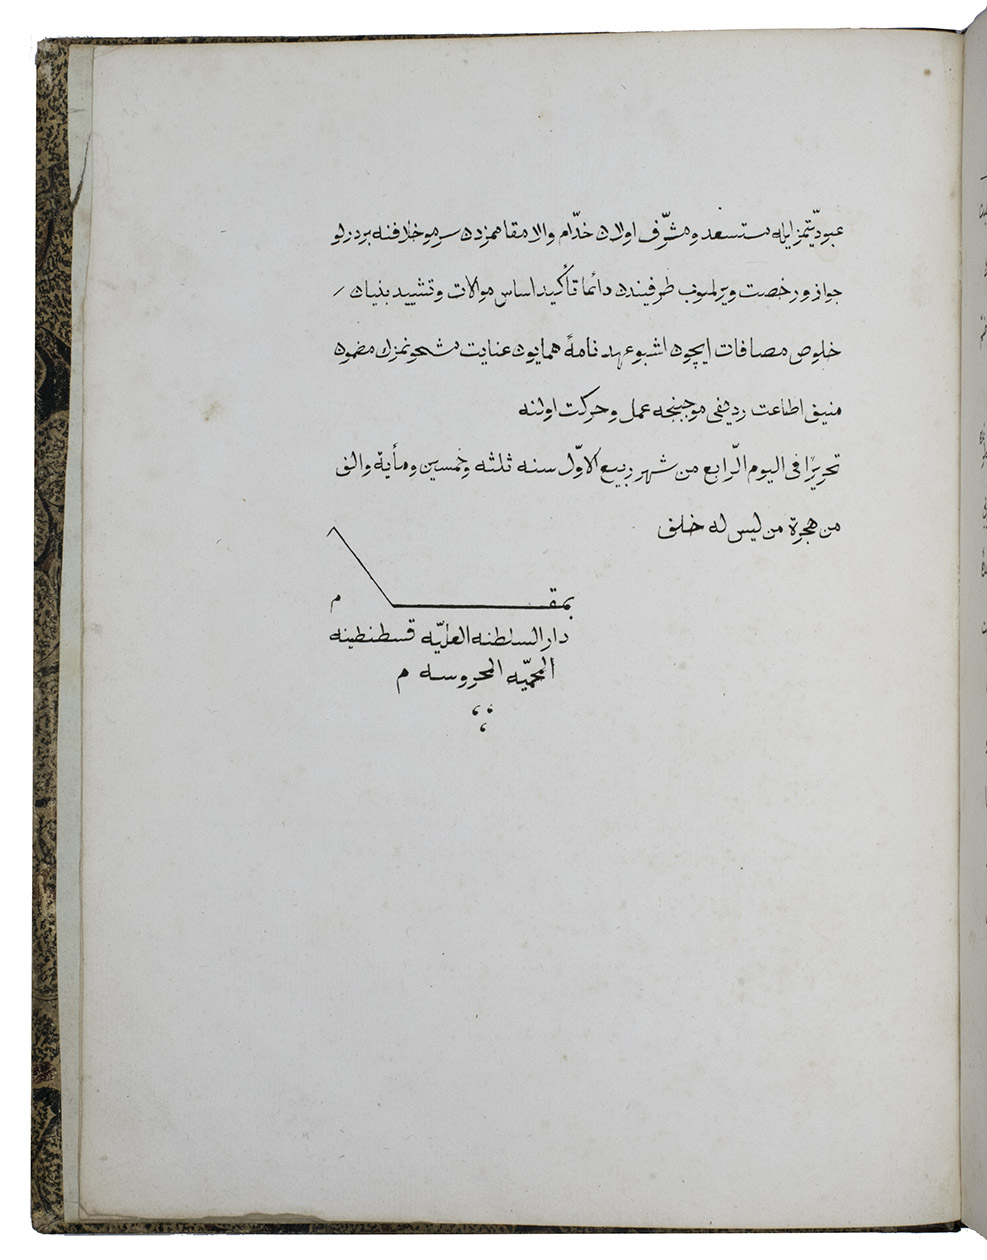 عبوديّتمز ايله مستسعد و مشرّف اولان خدّام والا مقاممزدن سر مو خلافنه بر درلو
جواز و رخصت ويرلميوب طرفيندن دائما تأكيد اساس موالات و تشييد بنيان
خلوص مصافات ايچون اشبو عهدنامهٔ همايون عنايت مشحونمزك مضمون
منيف اطاعت رديفى موجبنجه عمل و حركت اولنه
تحريرًا فى اليوم الرّابع من شهر ربيع الاوّل سنه ثلثه وخمسين ومأية والف
من هجرة من ليس له خلف
بمقـــام
دار السلطنه العليّه قسطنطينه
المحميّه المحروسه م